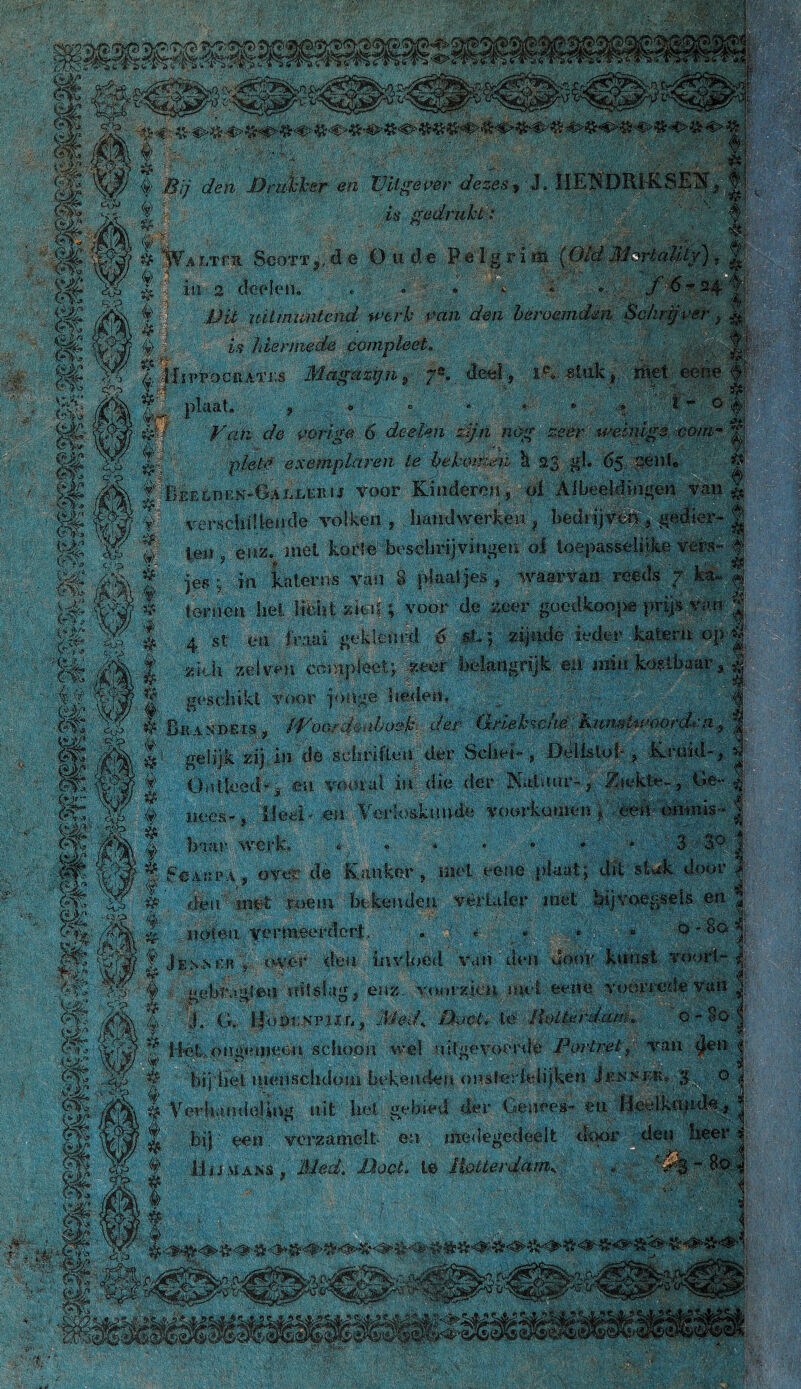 Bij den Drukker en Uitgever dezes, J. HENDRIKSEN,
is gedrukt:
WALTER SCOTT, de Oude Pelgrim (Old Mortality),
in 2 deelen. . . . . . . ƒ 6-24
Dit uitmuntend werk van den beroemden Schrijver,
is hiermede compleet.
HIPPOCRATES Magazijn, 7e. deel, 1e. stuk, met eene
plaat. , . . . . . , 1-0
Van de vorige 6 deelen zijn nog zeer weinige com-
plete exemplaren te bekomen à 23 gl. 65 cent.
BEELDEN-GALLERIJ voor Kinderen, of Afbeeldingen van
verschillende volken, handwerken, bedrijven, gedier-
ten, enz. met korte beschrijvingen of toepasselijke vers-
jes; in katerns van 8 plaatjes, waarvan reeds 7 ka-
ternen het licht zien; voor de zeer goedkoope prijs van
4 st en fraai gekleurd 6 st.; zijnde ieder katern op
zich zelven compleet; zeer belangrijk en min kostbaar,
geschikt voor jonge lieden.
BRANDEIS, Woordenboek der Grieksche Kunstwoorden,
gelijk zij in de schriften der Schei-, Delfstof-, Kruid-,
Ontleed-, en vooral in die der Natuur-, Ziekte-, Ge-
nees-, Heel- en Verloskunde voorkomen, een onmis-
baar werk. . . . . . . 3-30
SCARPA, over de Kanker, met eene plaat; dit stuk door
den met roem bekenden vertaler met bijvoegsels en
noten vermeerdert. . . . . . 0-80
JENNER, over den invloed van den door kunst voort-
gebragten uitslag, enz. voorzien met eene voorrede van
J. G. HODENPIJL, Med. Doct. te Rotterdam. 0-80
Het ongemeen schoon wel uitgevoerde Portret, van den
bij het menschdom bekenden onsterfelijken JENNER. 3 0
Verhandeling uit het gebied der Genees- en Heelkunde,
bij een verzamelt en medegedeelt door den heer
HIJMANS, Med. Doct. te Rotterdam. . 3-80